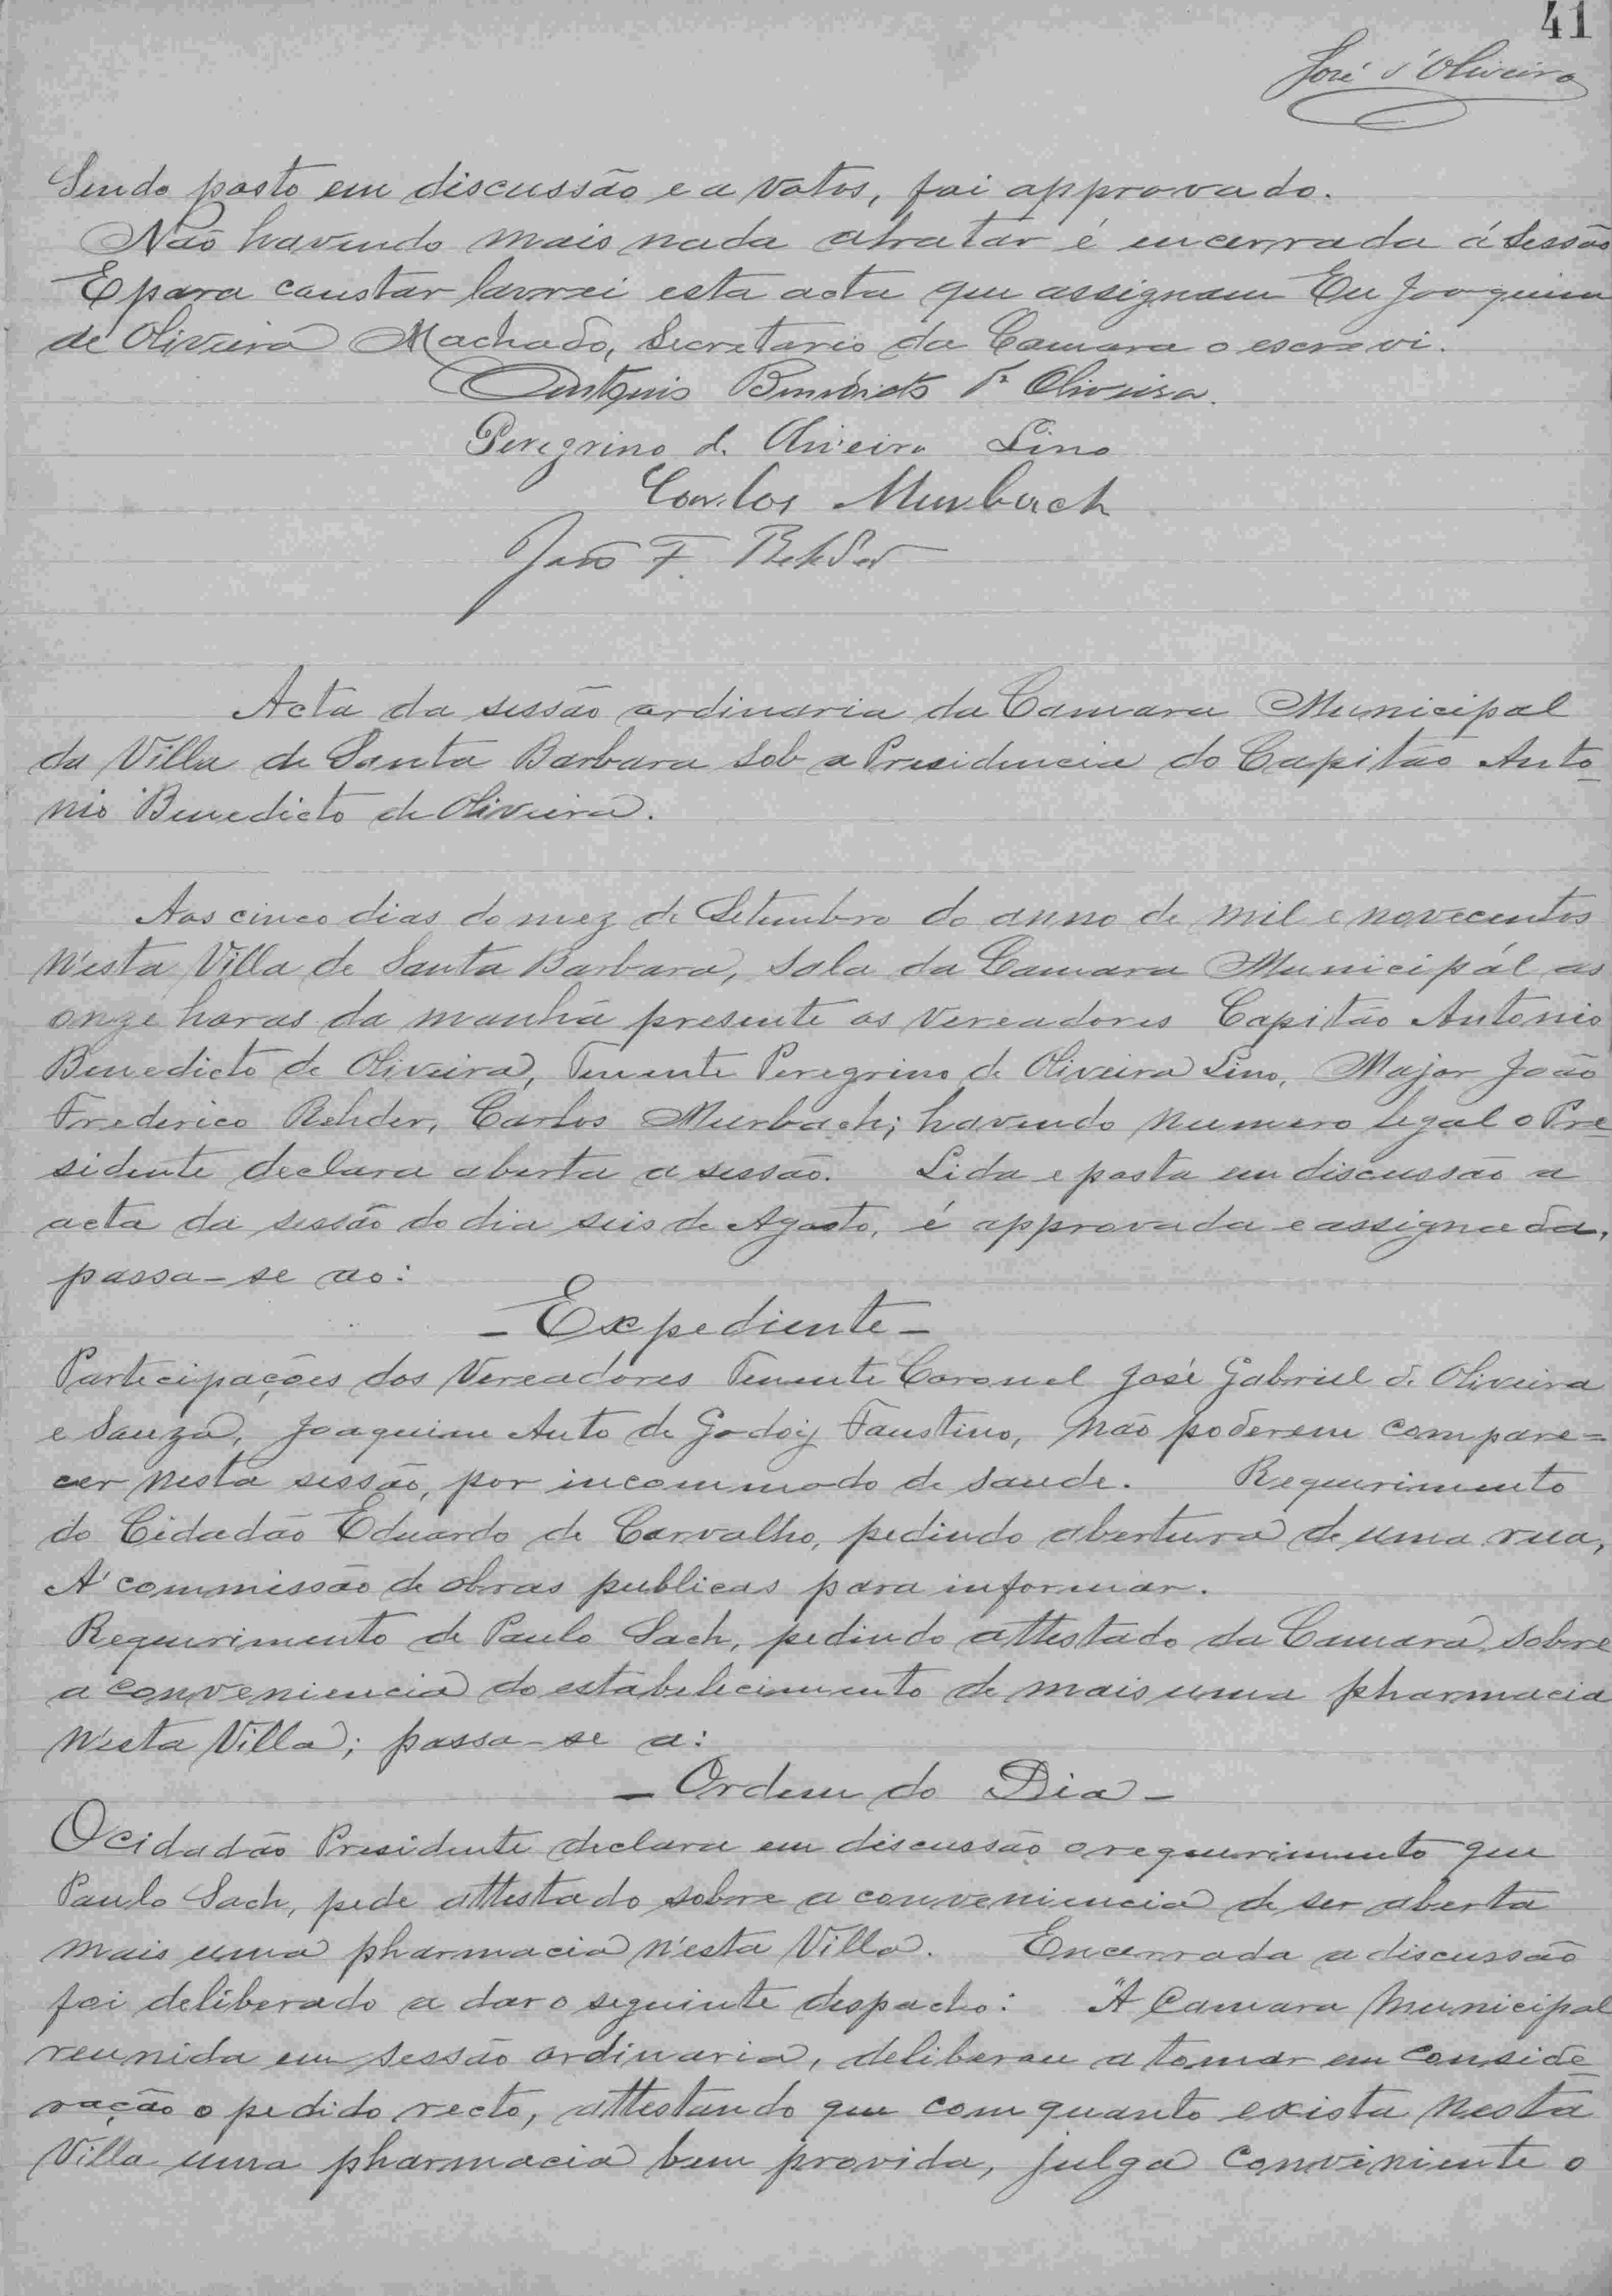 41
José d'Oliveira
Sendo posto em discussão e a votos, foi approvado.
Não havendo mais nada atratar é encerrada á sessão
E para constar lavrei esta acta que assignam Eu Joaquim
de Oliveira Machado, Secretario da Camara o escrevi.
Antonio Benedicto de Oliveira.
Peregrino d. Oliveira Lino
Carlos Murbach
João F. Rehder
Acta da sessão ordinaria da Camara Municipal
da Villa de Santa Barbara sob a Presidencia do Capitão Anto-
nio Benedicto de Oliveira.
Aos cinco dias do mez de Setembro do anno de mil e novecentos
n'esta Villa de Santa Barbara, sala da Camara Municipál as
onze horas da manhã presente os Vereadores Capitão Antonio
Benedicto de Oliveira, Tenente Peregrino de Oliveira Lino, Major João
Frederico Rehder, Carlos Murbach; havendo numero legal o Pre-
sidente declara aberta a sessão. Lida e posta em discussão a
acta da sessão do dia seis de Agosto, é approvada e assignada,
passa-se ao:
- Expediente -
Participações dos Vereadores Tenente Coronel José Gabriel d. Oliveira
e Souza, Joaquim Anto de Godoy Faustino, não poderem compare=
cer nesta sessão, por incommodo de saude. Requerimento
do Cidadão Eduardo de Carvalho, pedindo abertura de uma rua,
A' commissão de obras publicas para informar.
Requerimento de Paulo Sach, pedindo attestado da Camara sobre
a conveniencia do estabelecimento de mais uma pharmacia
n'esta Villa; passa-se a:
- Ordem do Dia -
O cidadão Presidente declara em discussão o requerimento que
Paulo Sach, pede attestado sobre a conveniencia de ser aberta
mais uma pharmacia n'esta Villa. Encerrada a discussão
foi deliberado a dar o seguinte despacho: "A Camara Municipal
reunida em sessão ordinaria, deliberou a tomar em conside-
ração o pedido recto, attestando que com quanto exista nesta
Villa uma pharmacia bem provida, julga conveniente o